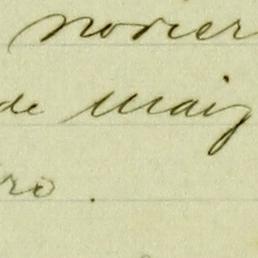 novier
de maig
ro.